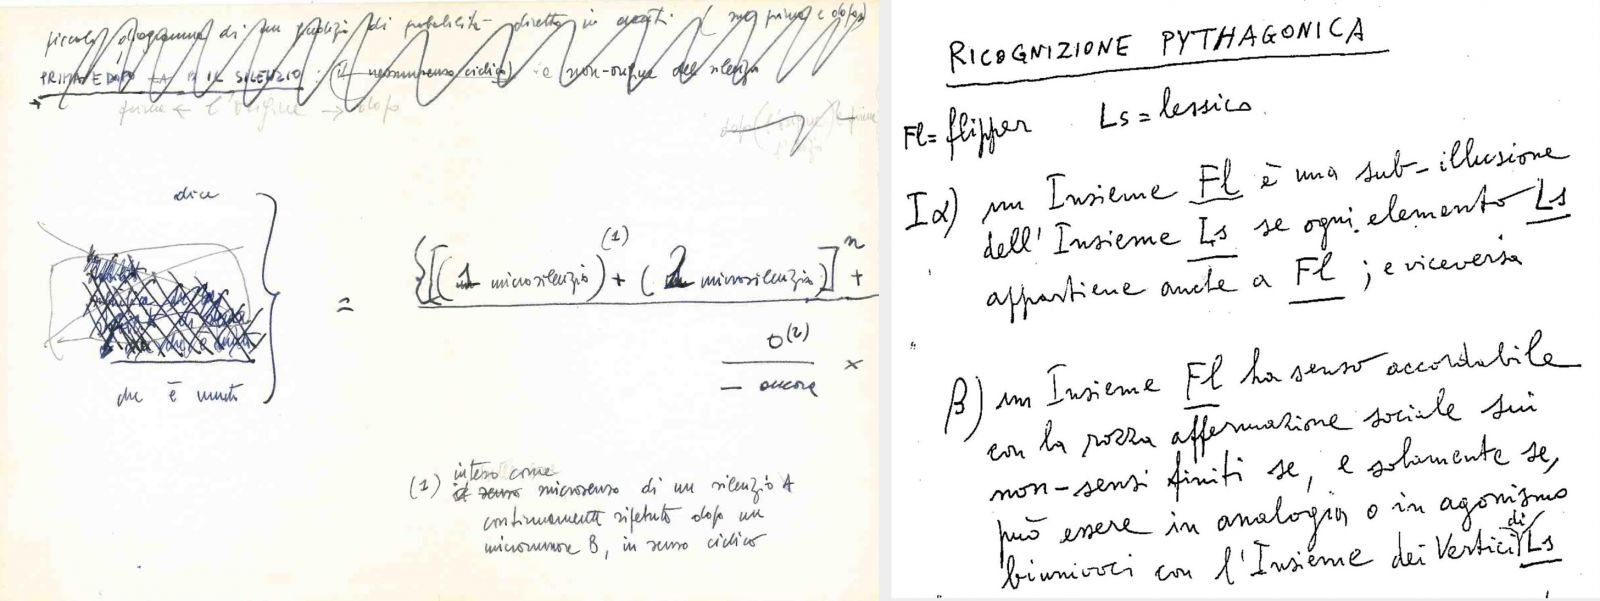 piccolo diagramma di un giudizio di probabilità diretto in
PRIMA E DOPO IL SILENZIO : (1 nessun senso ciclico) e non-origine del silenzio
prima ← l'origine → dopo
dopo
dice
che è muto
=
{[(1 microsilenzio)(1) + (2 microsilenzio)]n +
0(2)
— ancora
x
(1) inteso come
microsenso di un silenzio A
continuamente ripetuto dopo un
microrumore B, in senso ciclico
RICOGNIZIONE PYTHAGONICA
Fl= flipper Ls = lessico
Iα) un Insieme Fl è una sub-illusione
dell'Insieme Ls se ogni elemento Ls
appartiene anche a Fl ; e viceversa
β) un Insieme Fl ha senso accordabile
con la rozza affermazione sociale sui
non-sensi finiti se, e solamente se,
può essere in analogia o in agonismo
biunivoci con l'Insieme dei Vertici di Ls